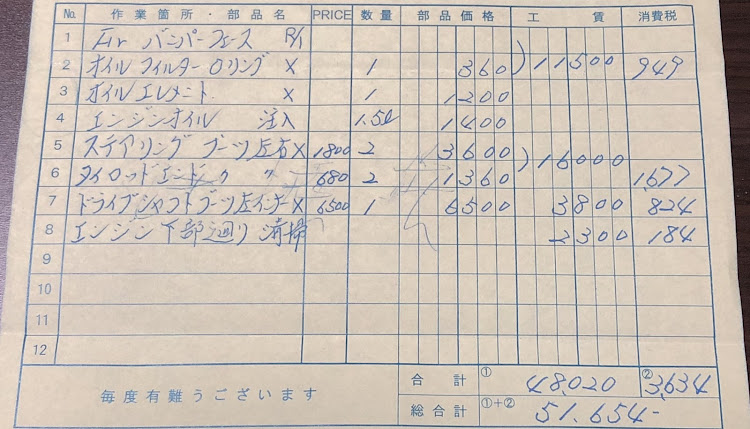 No. 作業箇所・部品名 PRICE 数量 部品価格 工賃 消費税
1 Fr バンパーフェース R/I
2 オイルフィルターOリング × 1 360 ) 11500 949
3 オイルエレメント × 1 1200
4 エンジンオイル 注入 1.5ℓ 1400
5 ステアリングブーツ左右 × 1800 2 3600 ) 16000
6 タイロッドエンド 〃 〃 680 2 1360 1,677
7 ドライブシャフトブーツ左インナー × 6500 1 6500 3800 824
8 エンジン下部廻り清掃 2300 184
9
10
11
12
毎度有難うございます 合計 ① 48,020 ② 3,634
総合計 ①+② 51,654-